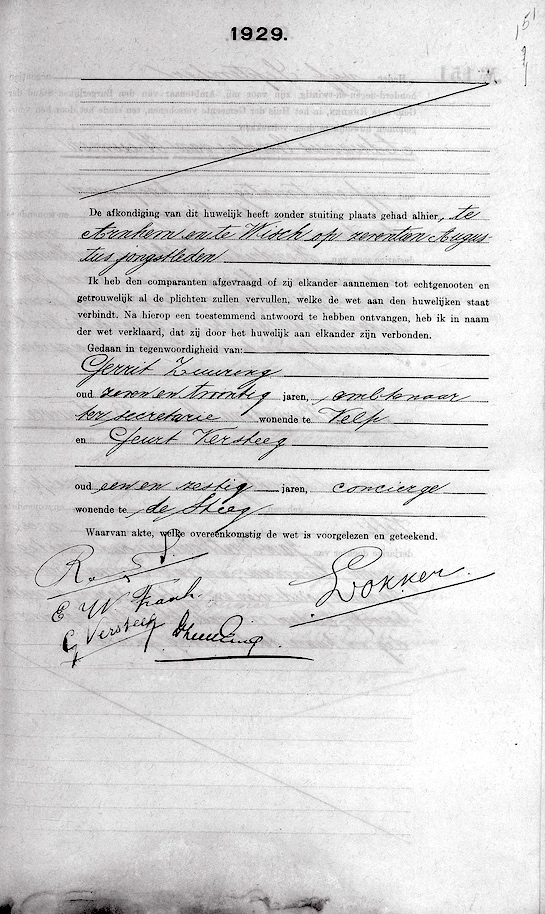 1929.
De afkondiging van dit huwelijk heeft zonder stuiting plaats gehad alhier, te
Arnhem en te Wisch op zeventien Augus-
tus jongstleden
Ik heb den comparanten afgevraagd of zij elkander aannemen tot echtgenooten en
getrouwelijk al de plichten zullen vervullen, welke de wet aan den huwelijken staat
verbindt. Na hierop een toestemmend antwoord te hebben ontvangen, heb ik in naam
der wet verklaard, dat zij door het huwelijk aan elkander zijn verbonden.
Gedaan in tegenwoordigheid van:
Gerrit
oud zeven en twintig jaren, ambtenaar
ter secretarie wonende te Velp
en Geurt Versteeg
oud een en zestig jaren, concierge
wonende te de Steeg
Waarvan akte, welke overeenkomstig de wet is voorgelezen en geteekend.
Lokker.
E W Frank
G Versteeg